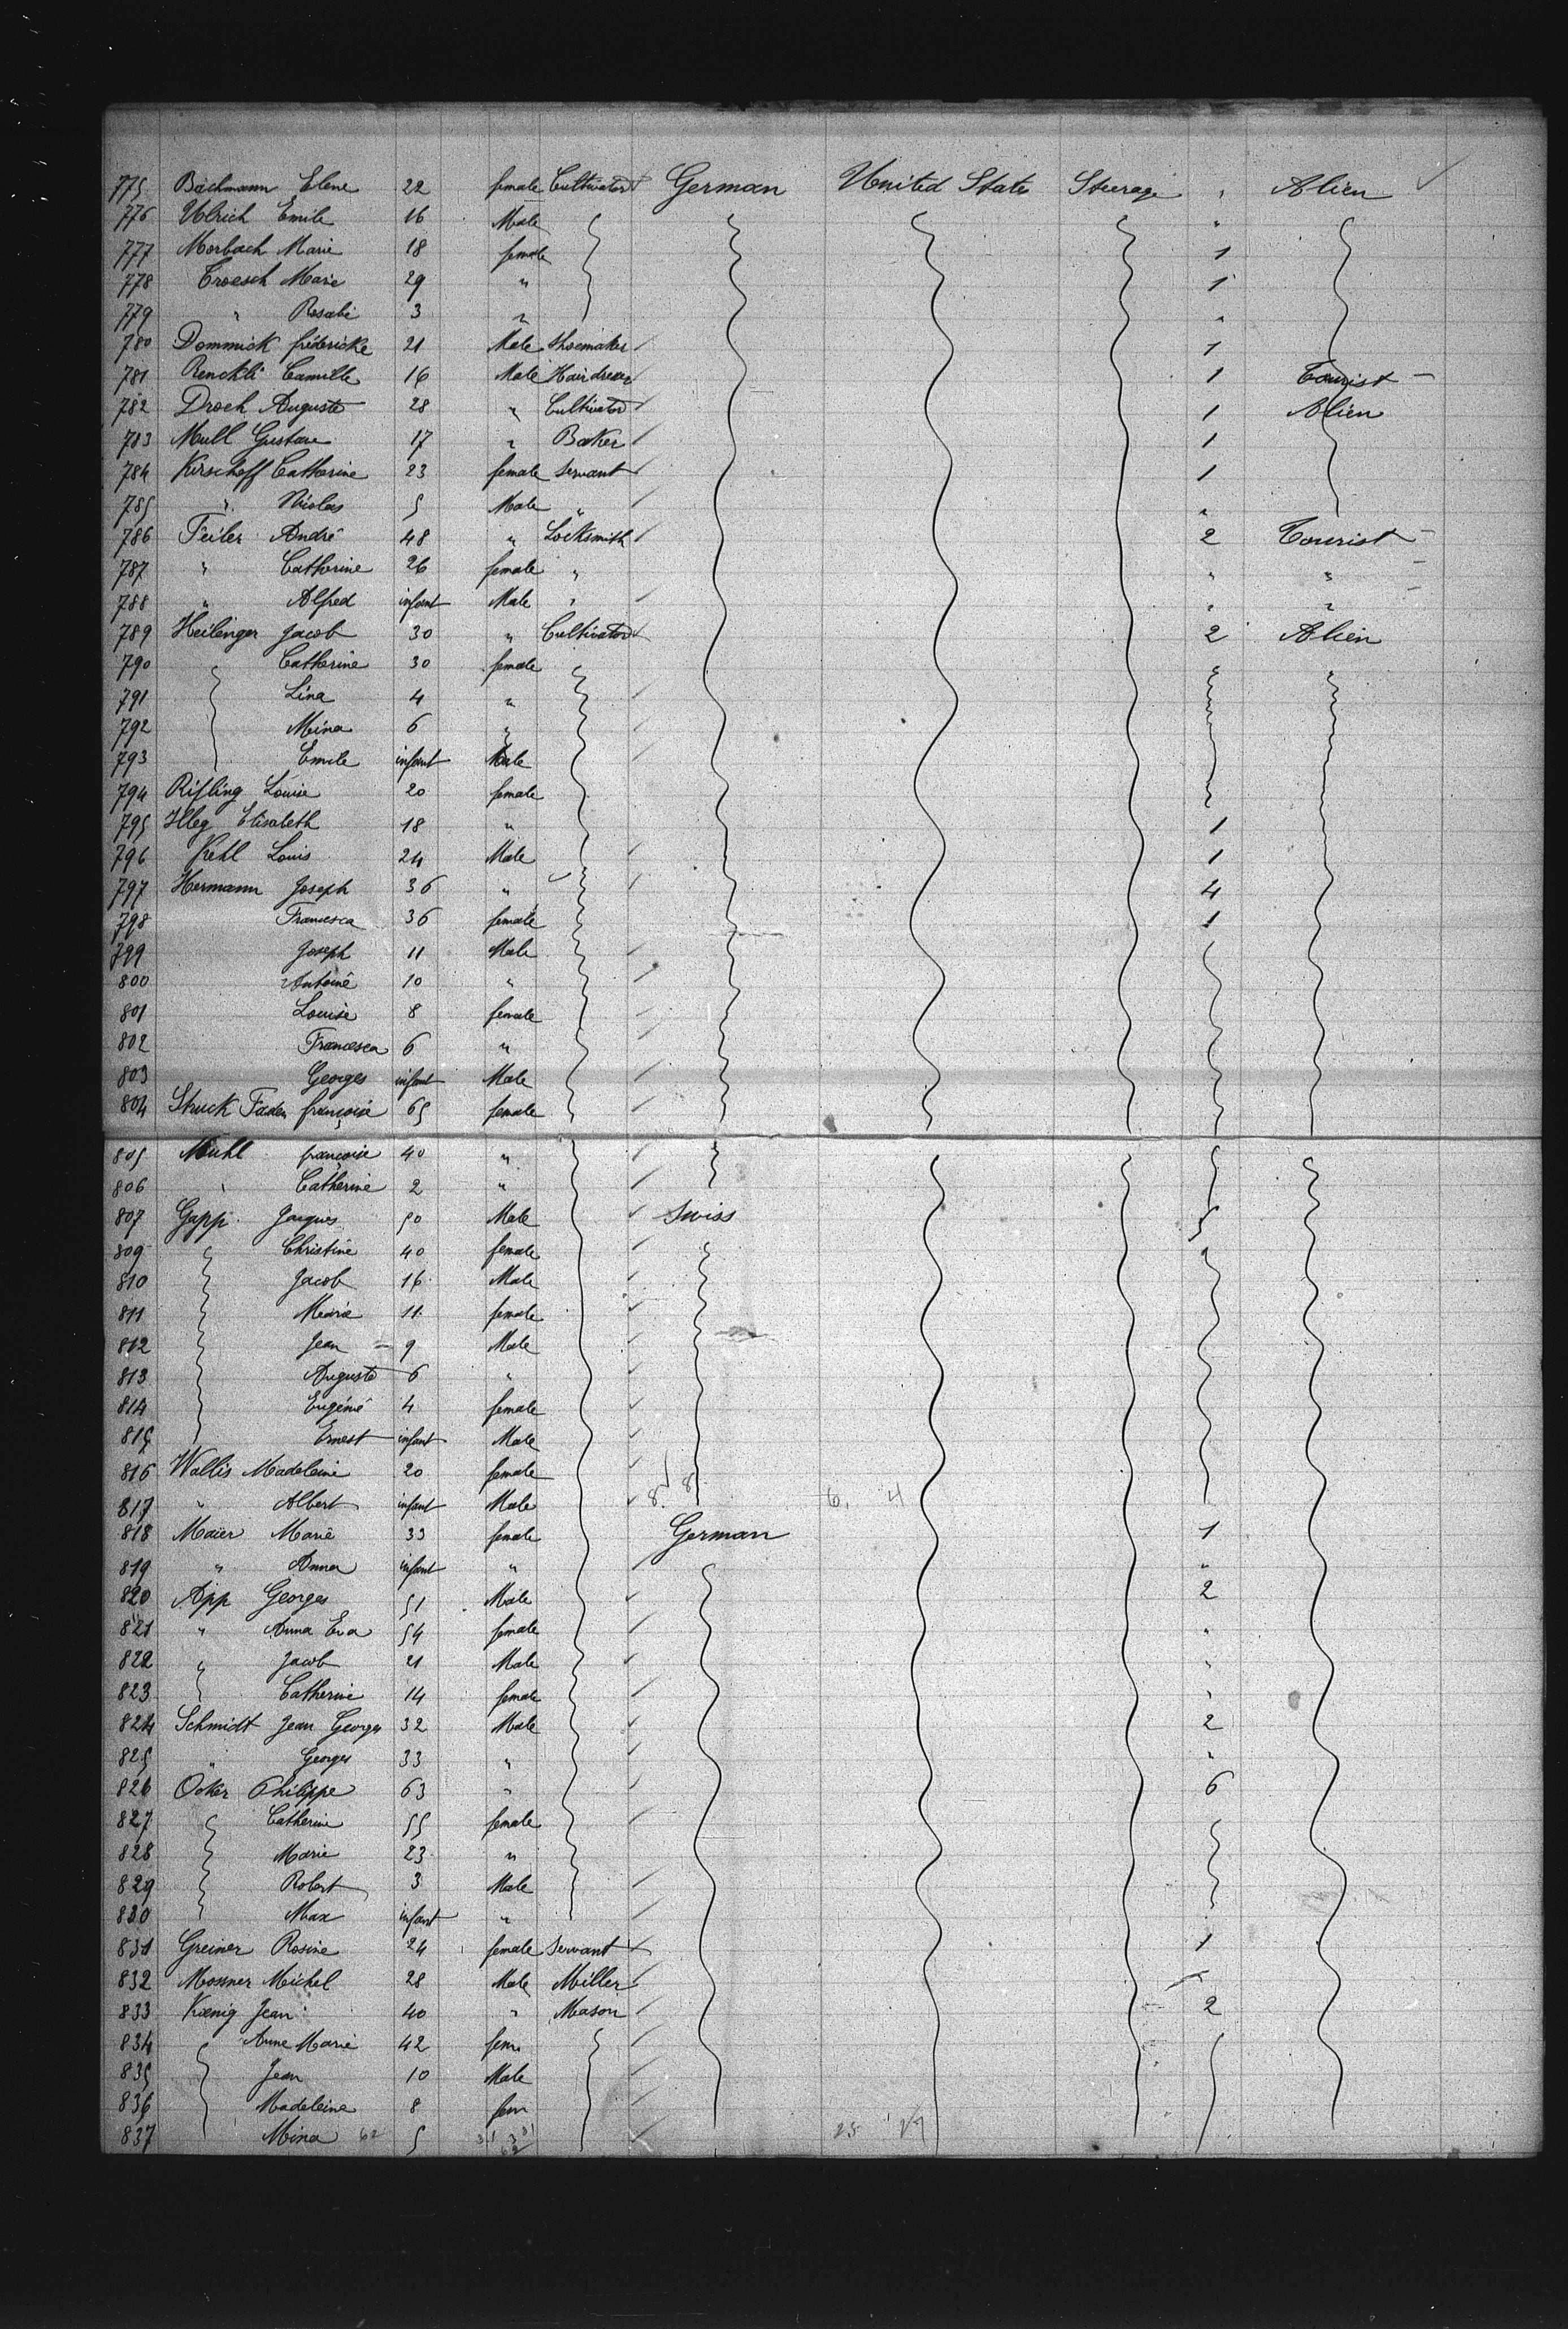 775 Bachmann Elene 22 female Cultivator German United States Steerage " Alien
776 Ulrich Emile 16 Male "
777 Morbach Marie 18 female 1
778 Troesch Marie 29 " 1
779 " Rosalie 3 " "
780 Dommick fréderické 21 Male Shoemaker 1
781 Renckli Camille 16 Male Hairdresser 1 Tourist
782 Droch Auguste 28 " Cultivator 1 Alien
783 Mull Gustave 17 " Baker 1
784 Kirschoff Catherine 23 female Servant 1
785 " Nicolas 5 Male " "
786 Feiler André 48 " Locksmith 2 Tourist
787 " Catherine 26 female " " "
788 " Alfred infant Male " " "
789 Heilinger Jacob 30 " Cultivator 2 Alien
790 Catherine 30 female "
791 Lina 4 "
792 Mina 6 "
793 Emile infant Male
794 Rifling Louise 20 female
795 Illeg Elisabeth 18 " 1
796 Kehl Louis 24 Male 1
797 Hermann Joseph 36 " 4
798 Francesca 36 female 1
799 Joseph 11 Male
800 Antoine 10 "
801 Louise 8 female
802 Francesca 6 "
803 Georges infant Male
804 Struck Faden françoise 65 female
805 Muhl françoise 40 "
806 " Catherine 2 "
807 Gapp Jacques 50 Male Swiss 5
809 Christine 40 female
810 Jacob 16 Male
811 Marie 11 female
812 Jean 9 Male
813 Auguste 6 "
814 Eugénie 4 female
815 Ernest infant Male
816 Wallis Madeleine 20 female
817 " Albert infant Male 8 8 6 4
818 Maier Marie 33 female German 1
819 " Anna infant " "
820 App Georges 51 Male 2
821 " Anna Eva 54 female "
822 " Jacob 21 Male "
823 Catherine 14 female "
824 Schmidt Jean Georges 32 Male 2
825 " Georges 33 " "
826 Ocker Philippe 63 " 6
827 Catherine 55 female
828 Marie 23 "
829 Robert 3 Male
830 Max infant "
831 Greiner Rosine 24 female Servant 1
832 Mosner Michel 28 Male Miller
833 Kœnig Jean 40 " Mason 2
834 Anne Marie 42 fem
835 Jean 10 Male
836 Madeleine 8 fem
837 Mina 62 5 25 27